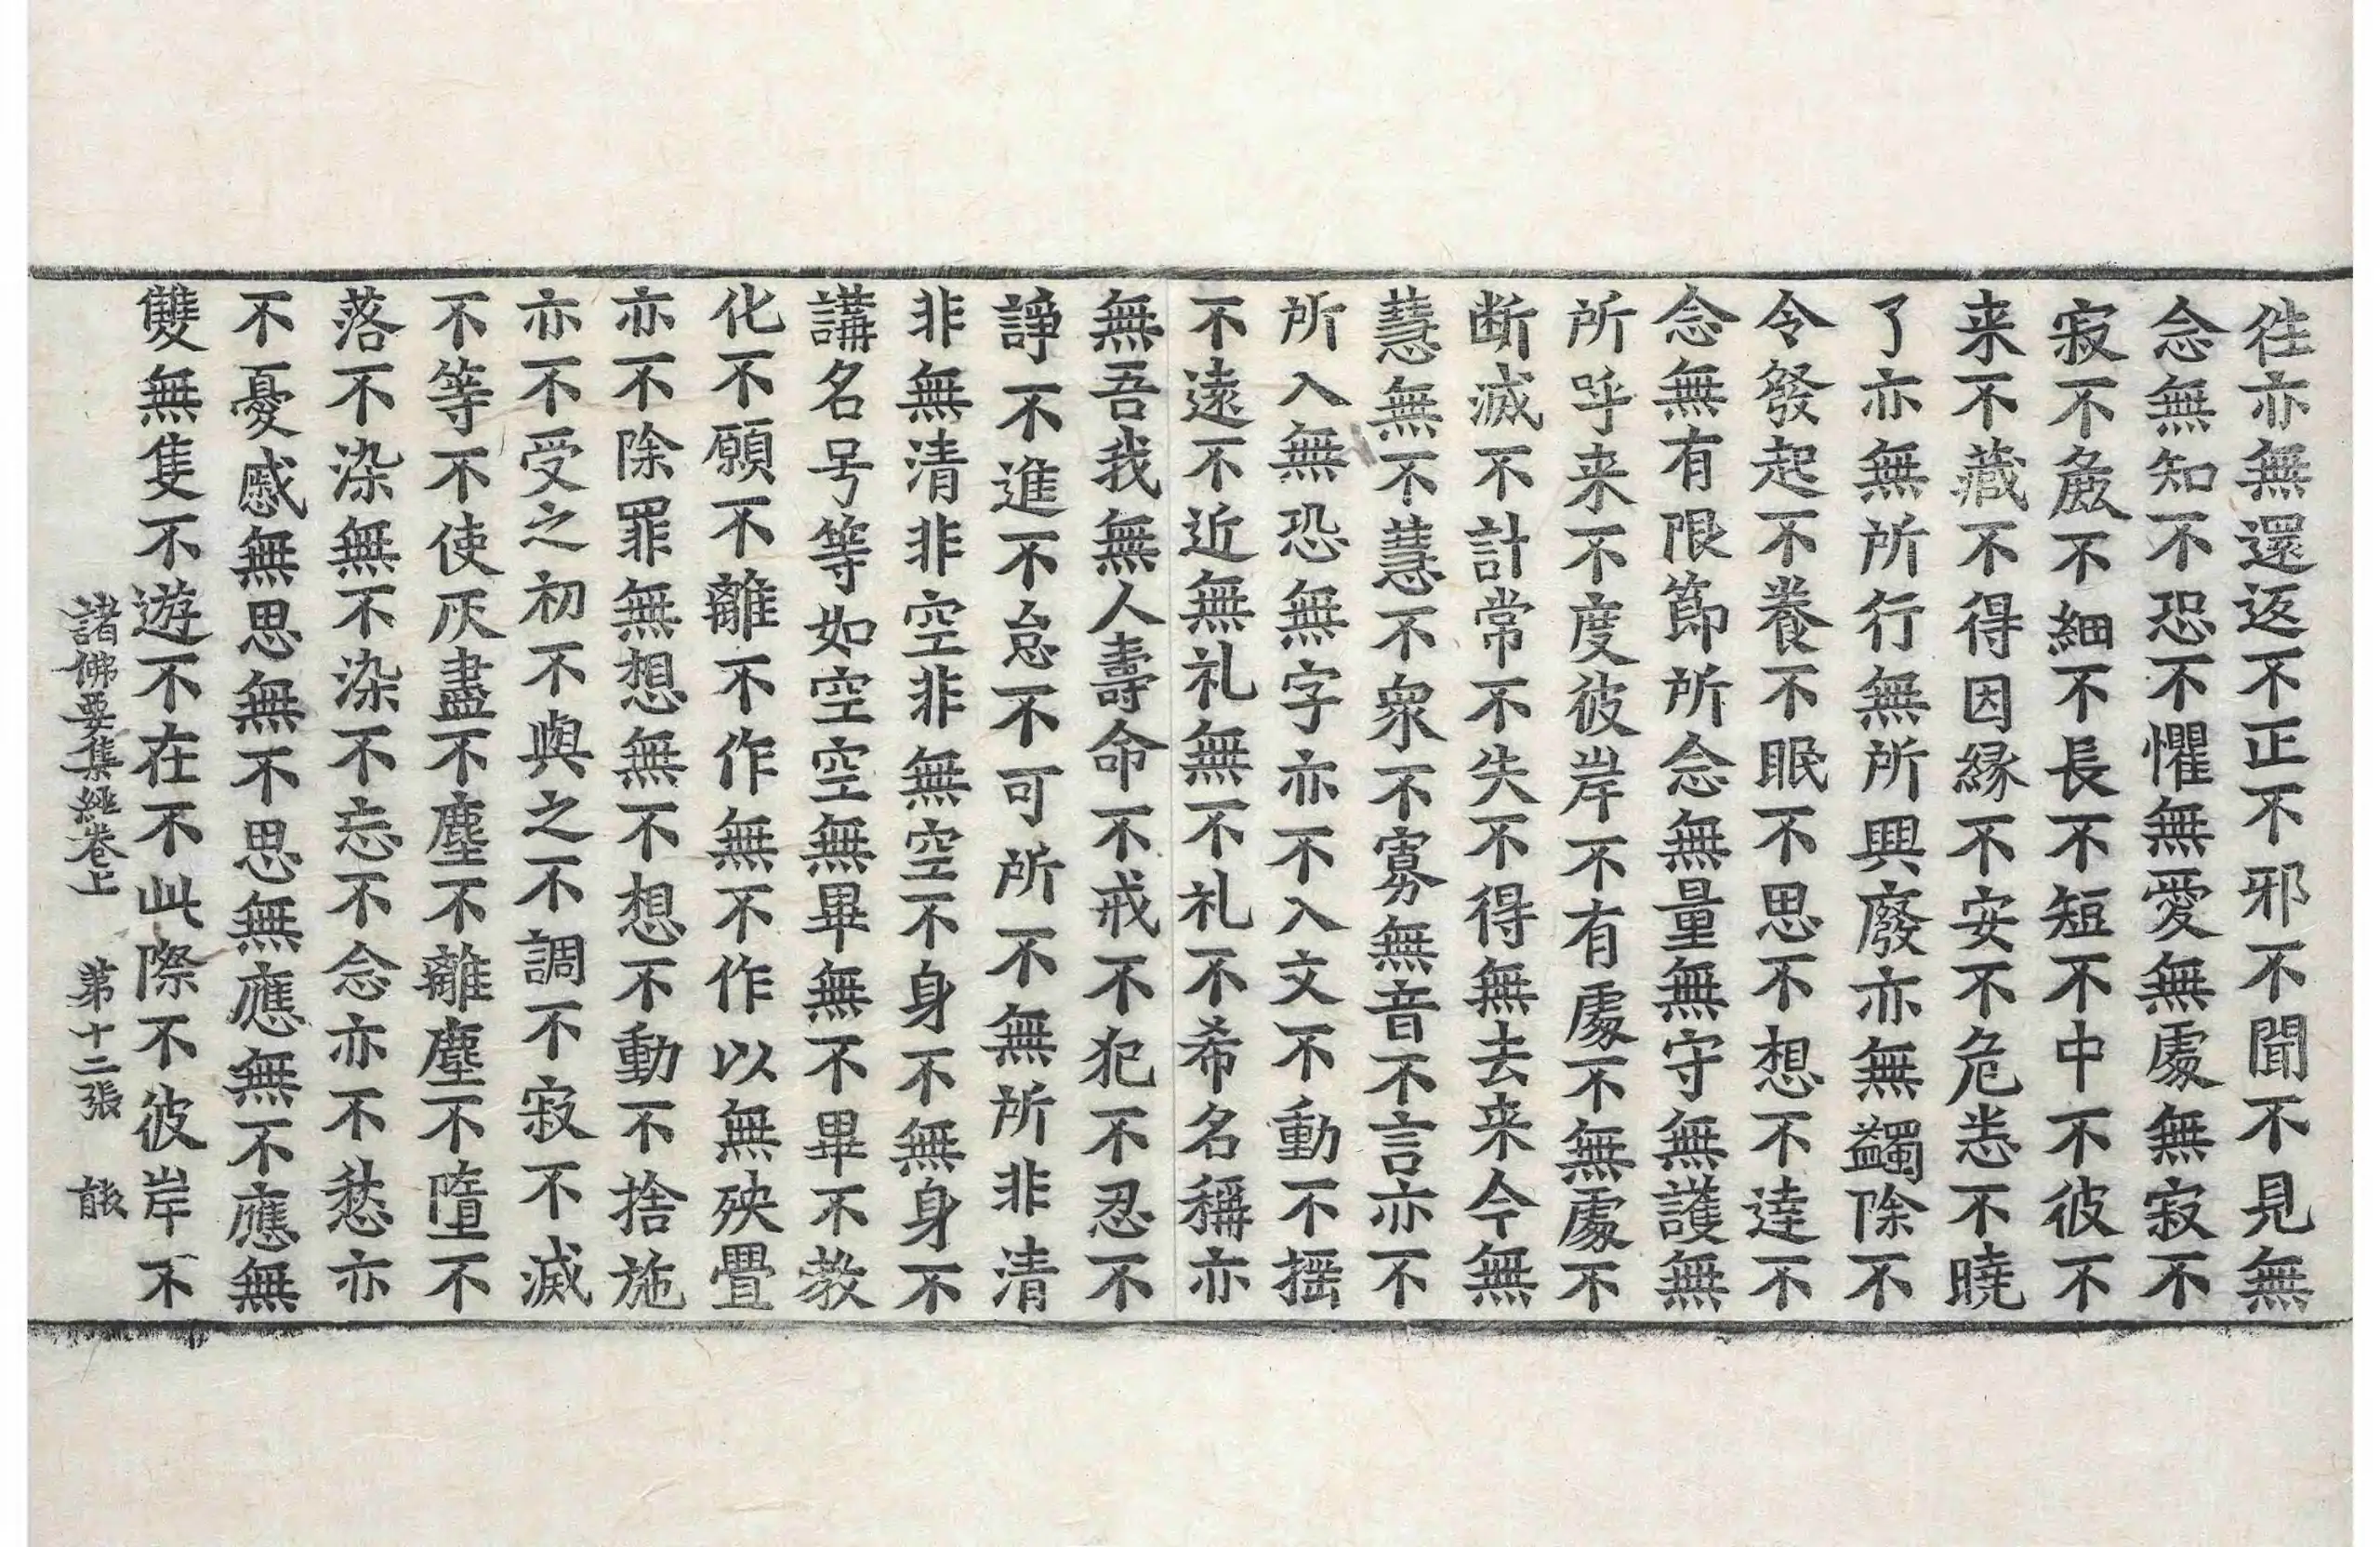 徃亦無還返不正不邪不聞不見無
念無知不恐不懼無愛無處無寂不
寂不麁不細不長不短不中不彼不
来不藏不得因縁不安不危恙不曉
了亦無所行無所興廢亦無蠲除不
令發起不養不眠不思不想不逹不
念無有限節所念無量無守無護無
所呼来不度彼岸不有處不無處不
断滅不計常不失不得無去来今無
慧無不慧不衆不寡無音不言亦不
所入無恐無字亦不入文不動不揺
不遠不近無礼無不礼不希名稱亦
無吾我無人壽命不戒不犯不忍不
諍不進不怠不可所不無所非清
非無清非空非無空不身不無身不
講名号等如空空無畢無不畢不教
化不願不離不作無不作以無殃疊
亦不除罪無想無不想不動不捨施
亦不受之初不與之不調不寂不滅
不等不使灰盡不塵不離塵不墮不
落不染無不染不忘不念亦不愁亦
不憂慼無思無不思無應無不應無
雙無隻不遊不在不此際不彼岸不
諸佛要集經卷上 第十二張